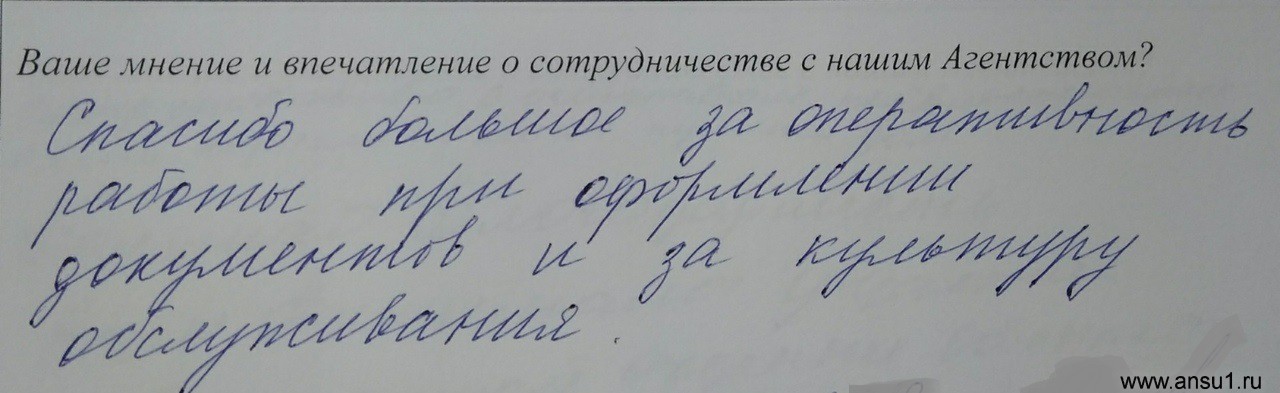 Ваше мнение и впечатление о сотрудничестве с нашим Агентством?
Спасибо большое за оперативность
работы при оформлении
документов и за культуру
обслуживания.
www.ansu1.ru